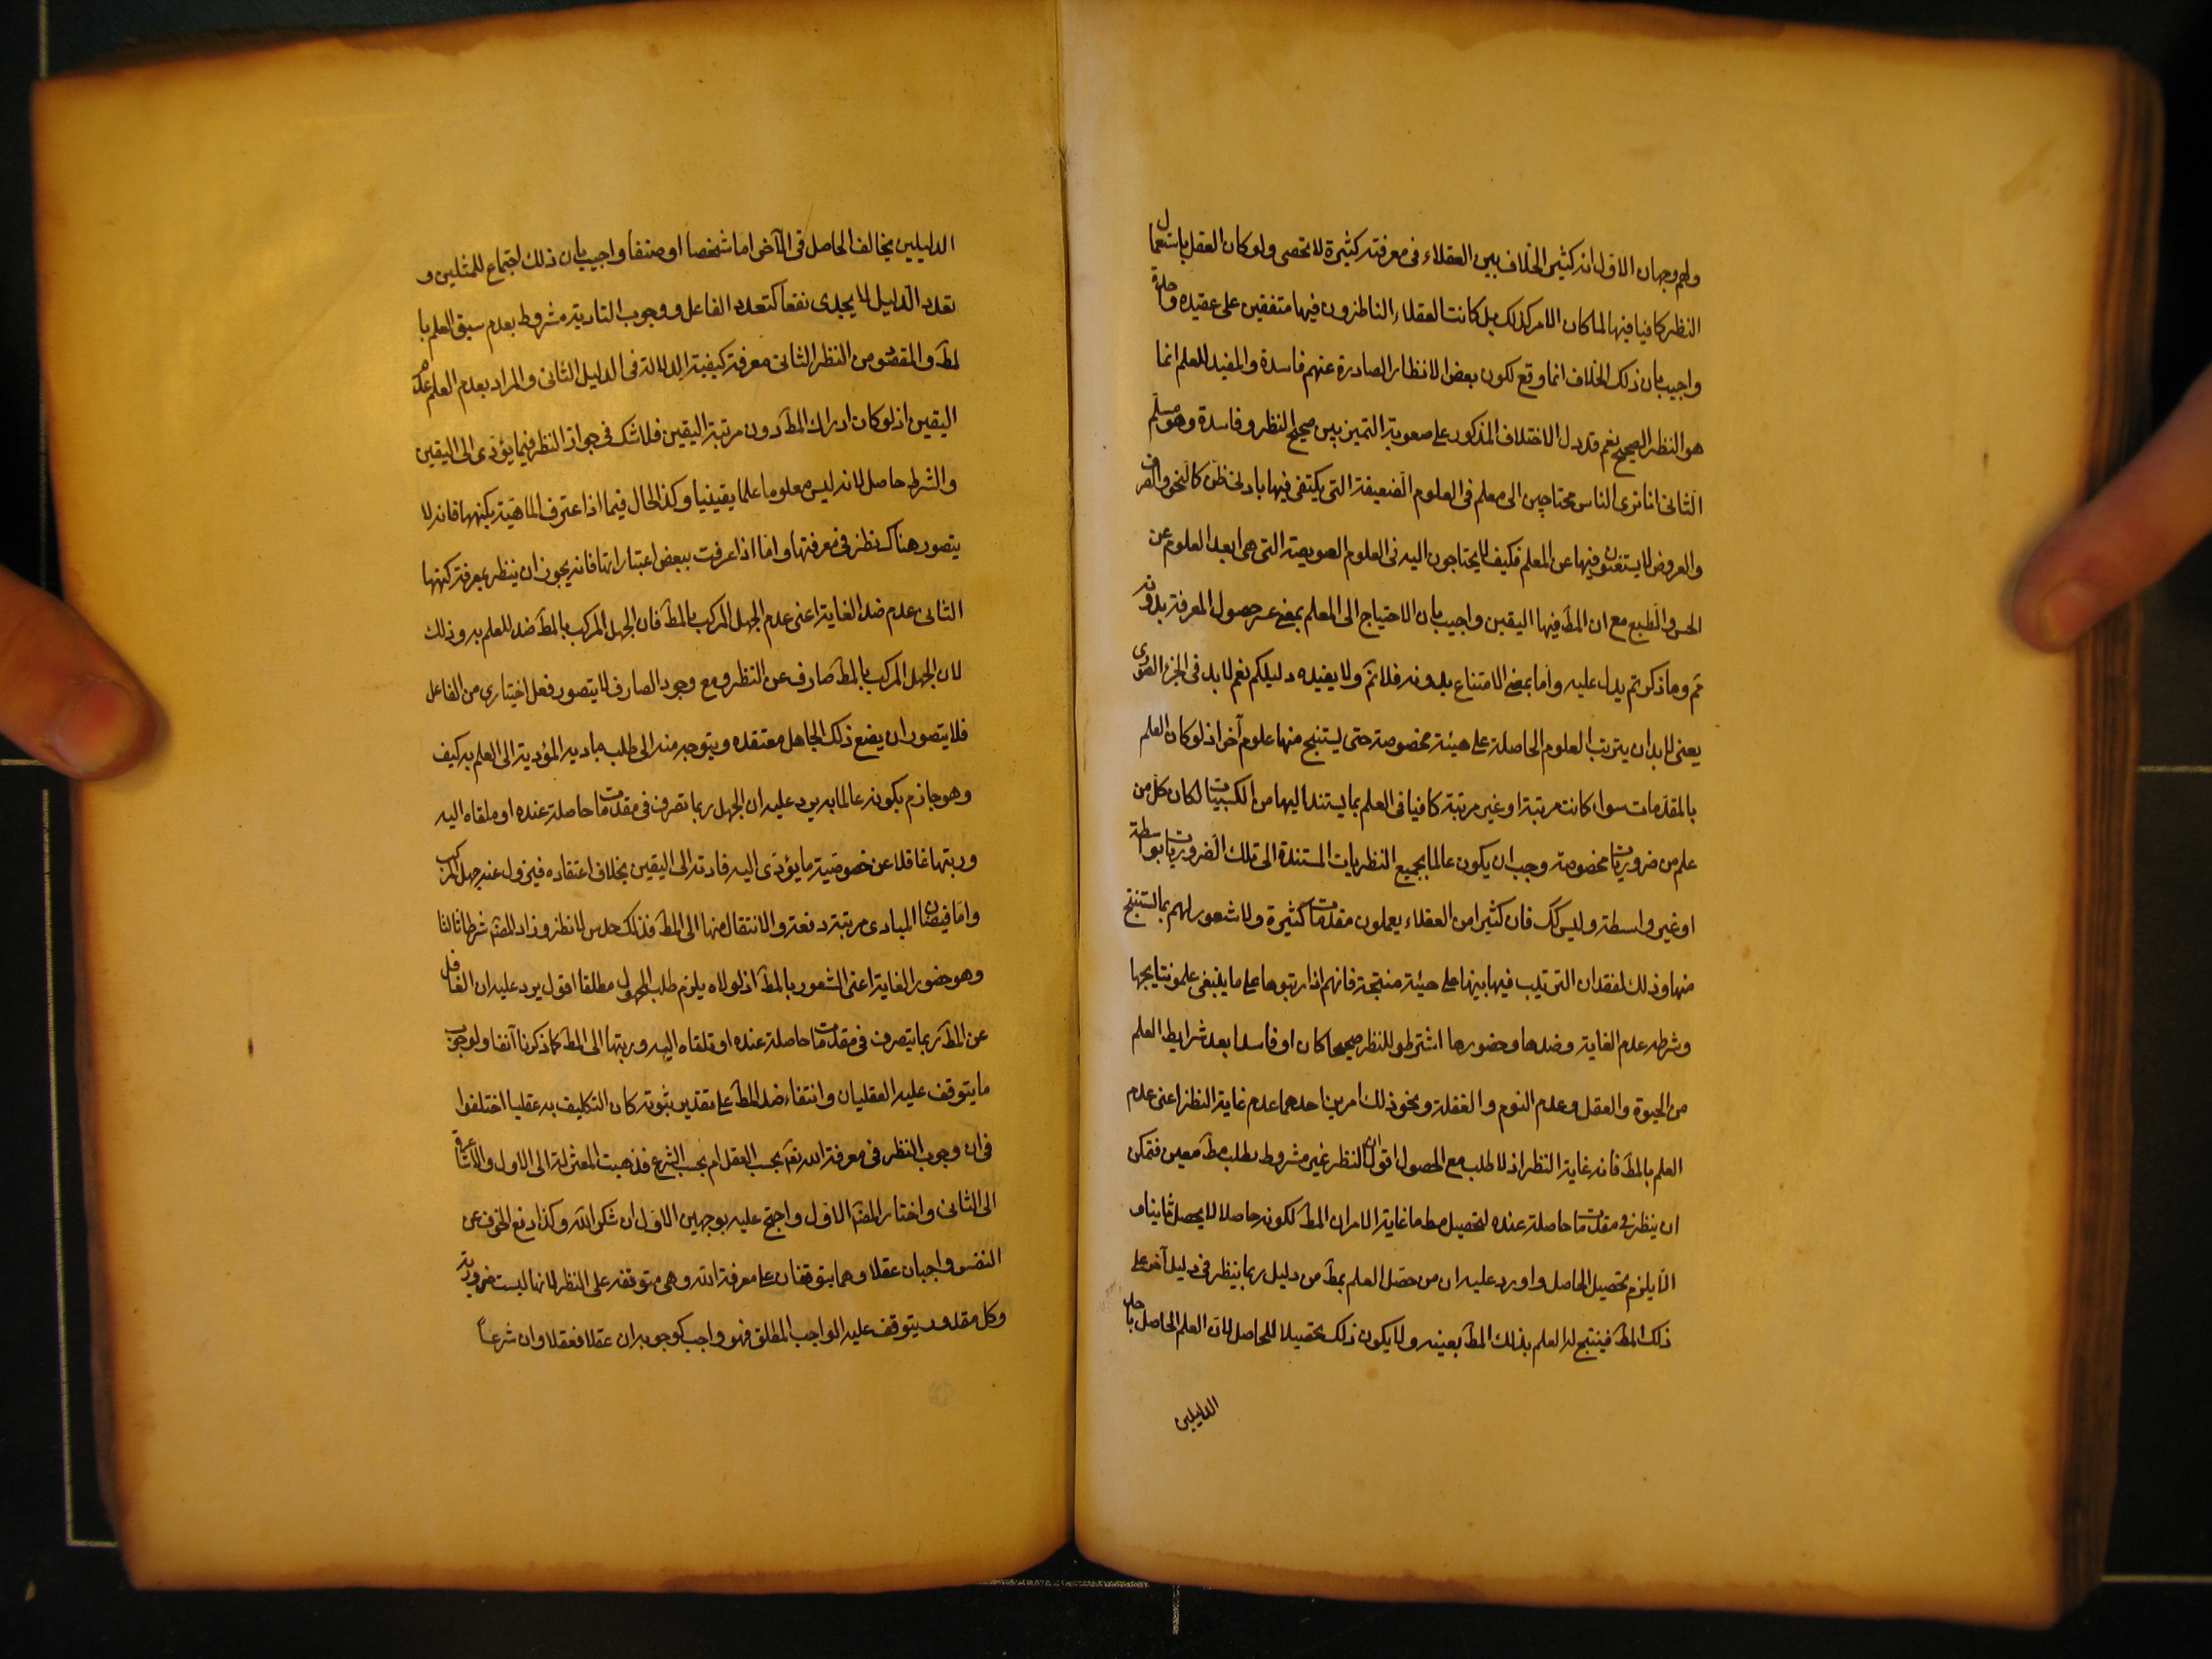 ولهم وجهان الاول انه كثير الخلاف بين العقلاء فى معرفته كثيرة لا تحصى ولو كان العقل باستعمال
النظر كافيا فيها لما كان الامر كذلك بل كانت العقلاء الناظرون فيها متفقين على عقيده واحدة
واجيب بان ذلك الخلاف انما وقع لكون بعض الانظار الصادرة عنهم فاسدة والمفيد للعلم انما
هو النظر الصحيح نعم قد دل الاختلاف المذكور على صعوبة التميز بين صحيح النظر وفاسدة وهو مسلم
الثانى انا نرى الناس محتاجين الى معلم فى العلوم الضعيفة التى يكتفى فيها بادنى ظن كالنحو والصرف
والعروض لا يستغنون فيها عن المعلم فكيف لا يحتاجون اليه فى العلوم العويصة التى هى ابعد العلوم عن
الحس والطبع مع ان المط فيها اليقين واجيب بان الاحتياج الى المعلم بمعنى عسر حصول المعرفة بدونه
مم وما ذكرتم يدل عليه واما بمعنى الامتناع بدونه فلا نم ولا يفيده دليلكم نعم لا بد فى الجزء الصورى
يعنى لا بد ان يترتب العلوم الحاصلة على هيئة مخصوصة حتى يستنتج منها علوم آخر اذ لو كان العلم
بالمقدمات سواء كانت مرتبة او غير مرتبة كافيا فى العلم بما يستند اليها من الكسبيات لكان كل من
علم من ضروريات مخصوصة وجب ان يكون عالما بجميع النظريات المستندة الى تلك الضروريات بواسطة
او غير واسطة وليس كك فان كثيرا من العقلاء يعلمون مقدمات كثيرة ولا شعور لهم بما يستنتج
منها وذلك لفقدان الترتيب فيها بينها على هيئة منتجة فانهم اذا رتبوها على ما ينبغى علموا نتايجها
وشرطه عدم الغاية وضدها وحضورها اشترطوا للنظر صحيحا كان او فاسدا بعد شرايط العلم
من الحيوة والعقل وعدم النوم والغفلة ونحو ذلك امرين احدهما عدم غاية النظر اعنى عدم
العلم بالمط فانه غاية النظر اذ لا طلب مع الحصول اقول ان النظر غير مشروط بطلب مط معين فتمكن
ان ينظر فى مقدمات ما حاصلة عنده لتحصيل مط ما غاية الامر ان المط لكونه حاصلا لا يحصل ثانيا و
الا يلزم تحصيل الحاصل واورد عليه ان من حصل العلم بمط من دليل ربما ينظر فى دليل آخر على
ذلك المط فينتج له العلم بذلك المط بعينه ولا يكون ذلك تحصيلا للحاصل لان العلم الحاصل باحد
الدليلين
الدليلين يخالف الحاصل فى الآخر اما شخصا او صنفا واجيب بان ذلك اجتماع للمثلين و
تعدد الدليل لا يجدى نفعا كتعدد الفاعل ووجوب التادية مشروط بعدم سبق العلم با
لمط والمقصود من النظر الثانى معرفة كيفية الدلالة فى الدليل الثانى والمراد بعدم العلم عدم
اليقين اذ لو كان ادراك المط دون مرتبة اليقين فلا شك فى جواز النظر فيما يؤدى الى اليقين
والشرط حاصل لانه ليس معلوما علما يقينيا وكذا الحال فيما اذا عترف الماهية بكنهها فانه لا
يتصور هناك نظر فى معرفتها واما اذا عرفت ببعض اعتباراتها فانه يجوز ان ينظر بمعرفة كنهها
الثانى عدم ضد الغاية اعنى عدم الجهل المركب بالمط فان الجهل المركب بالمط ضد للعلم به وذلك
لان الجهل المركب بالمط صارف عن النظر ومع وجود الصارف لا يتصور فعل اختيارى من الفاعل
فلا يتصور ان يضع ذلك الجاهل معتقده ويتوجه منه الى طلب مباديه المؤدية الى العلم به كيف
وهو جازم بكونه عالما به يرد عليه ان الجهل ربما تصرف فى مقدمات ما حاصلة عنده او ملقاه اليه
ورتبها غافلا عن خصوصية ما يؤدى اليه فادته الى اليقين بخلاف اعتقاده فيزول عنه جهل المركب
واما فيضان المبادى مرتبة دفعة والانتقال منها الى المط فذلك حدس لا نظر وزاد المصم شرطا ثالثا
وهو حضور الغاية اعنى الشعور بالمط اذ لولاه يلزم طلب المجهول مطلقا اقول يرد عليه ان الغافل
عن المط ربما يتصرف فى مقدمات ما حاصلة عنده او تلقاه اليه ورتبها الى المط كما ذكرنا آنفا ولوجوب
ما يتوقف عليه العقليان وانتفاء ضد المط على تقدير ثبوته كان التكليف به عقليا اختلفوا
فى ان وجوب النظر فى معرفة الله تعم بحسب العقل ام بحسب الشرع فذهبت المعتزلة الى الاول والاشاعرة
الى الثانى واختار المصم الاول واحتج عليه بوجهين الاول ان شكر الله وكذا دفع الخوف عن
النفس واجبان عقلا وهما يتوقفان على معرفة الله وهى متوقفه على النظر لانها ليست ضرورية
وكل مقدور يتوقف عليه الواجب المطلق فهو واجب كوجوبه ان عقلا فعقلا وان شرعاً